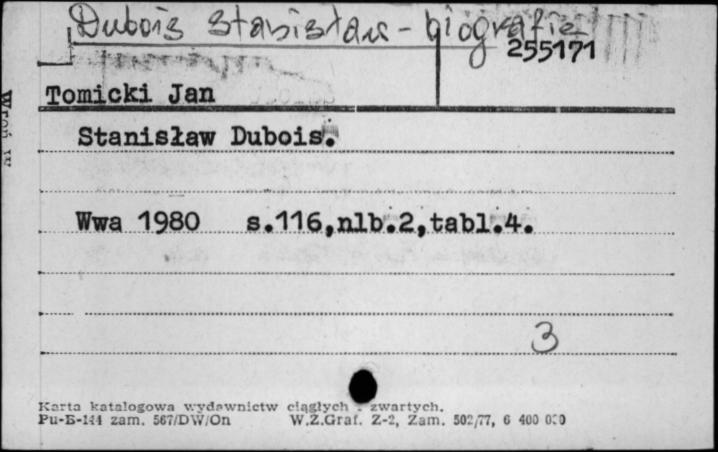 Dubois Stanisław - biografie
255171
Tomicki Jan
Stanisław Dubois.
Wwa 1980 s.116,nlb.2,tabl.4.
3
Karta katalogowa wydawnictw ciągłych i zwartych.
Pu-B-144 zam. 567/DW/On W.Z.Graf. Z-2, Zam. 502/77, 6 400 000